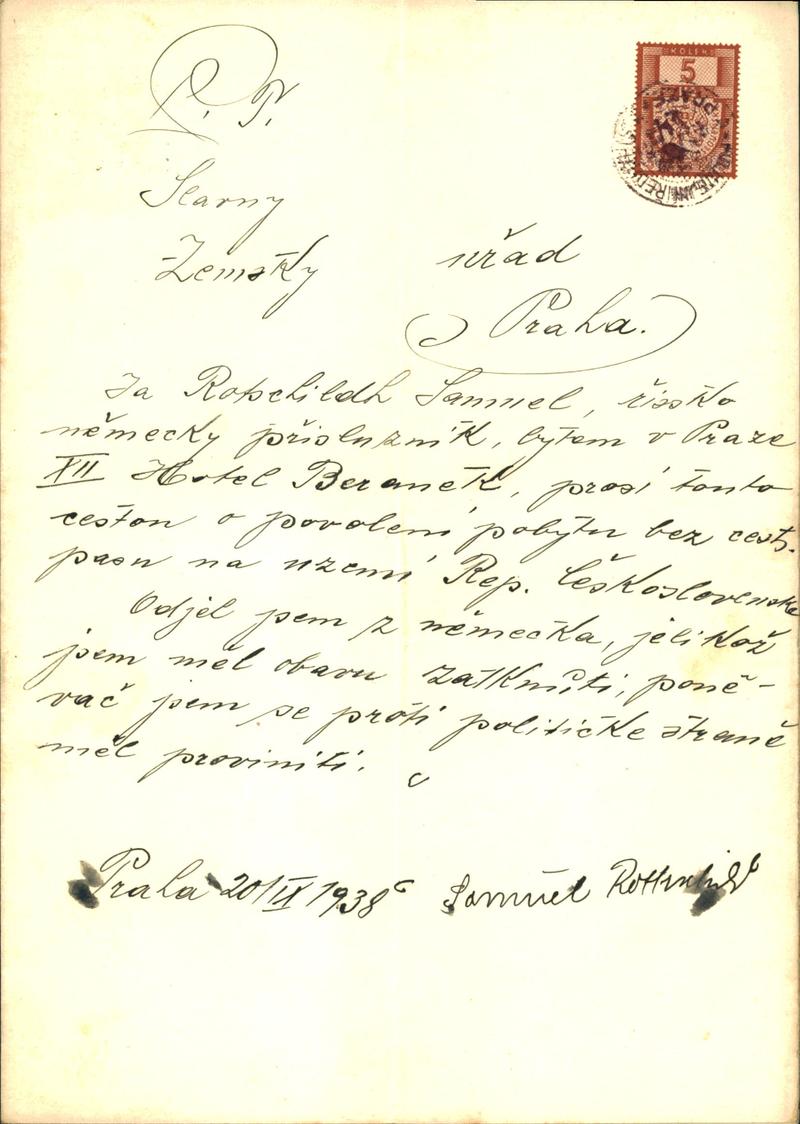 P. T.
KOLEK
5
Slavny
Zemsky úřad
Praha.
Ja Rotschildh Samuel, řissko
německy přislužnik, bytem v Praze
XII Hotel Beraněk, prosi touto
cestou o povoleni pobytu bez cest.
pasu na uzemi Rep. Československe
Odjel jsem z německa, jelikož
jsem měl obavu zatknuti, poně-
vač jsem se proti politicke straně
měl proviniti.
Praha 20/IX 1938 Samuel Rothschild